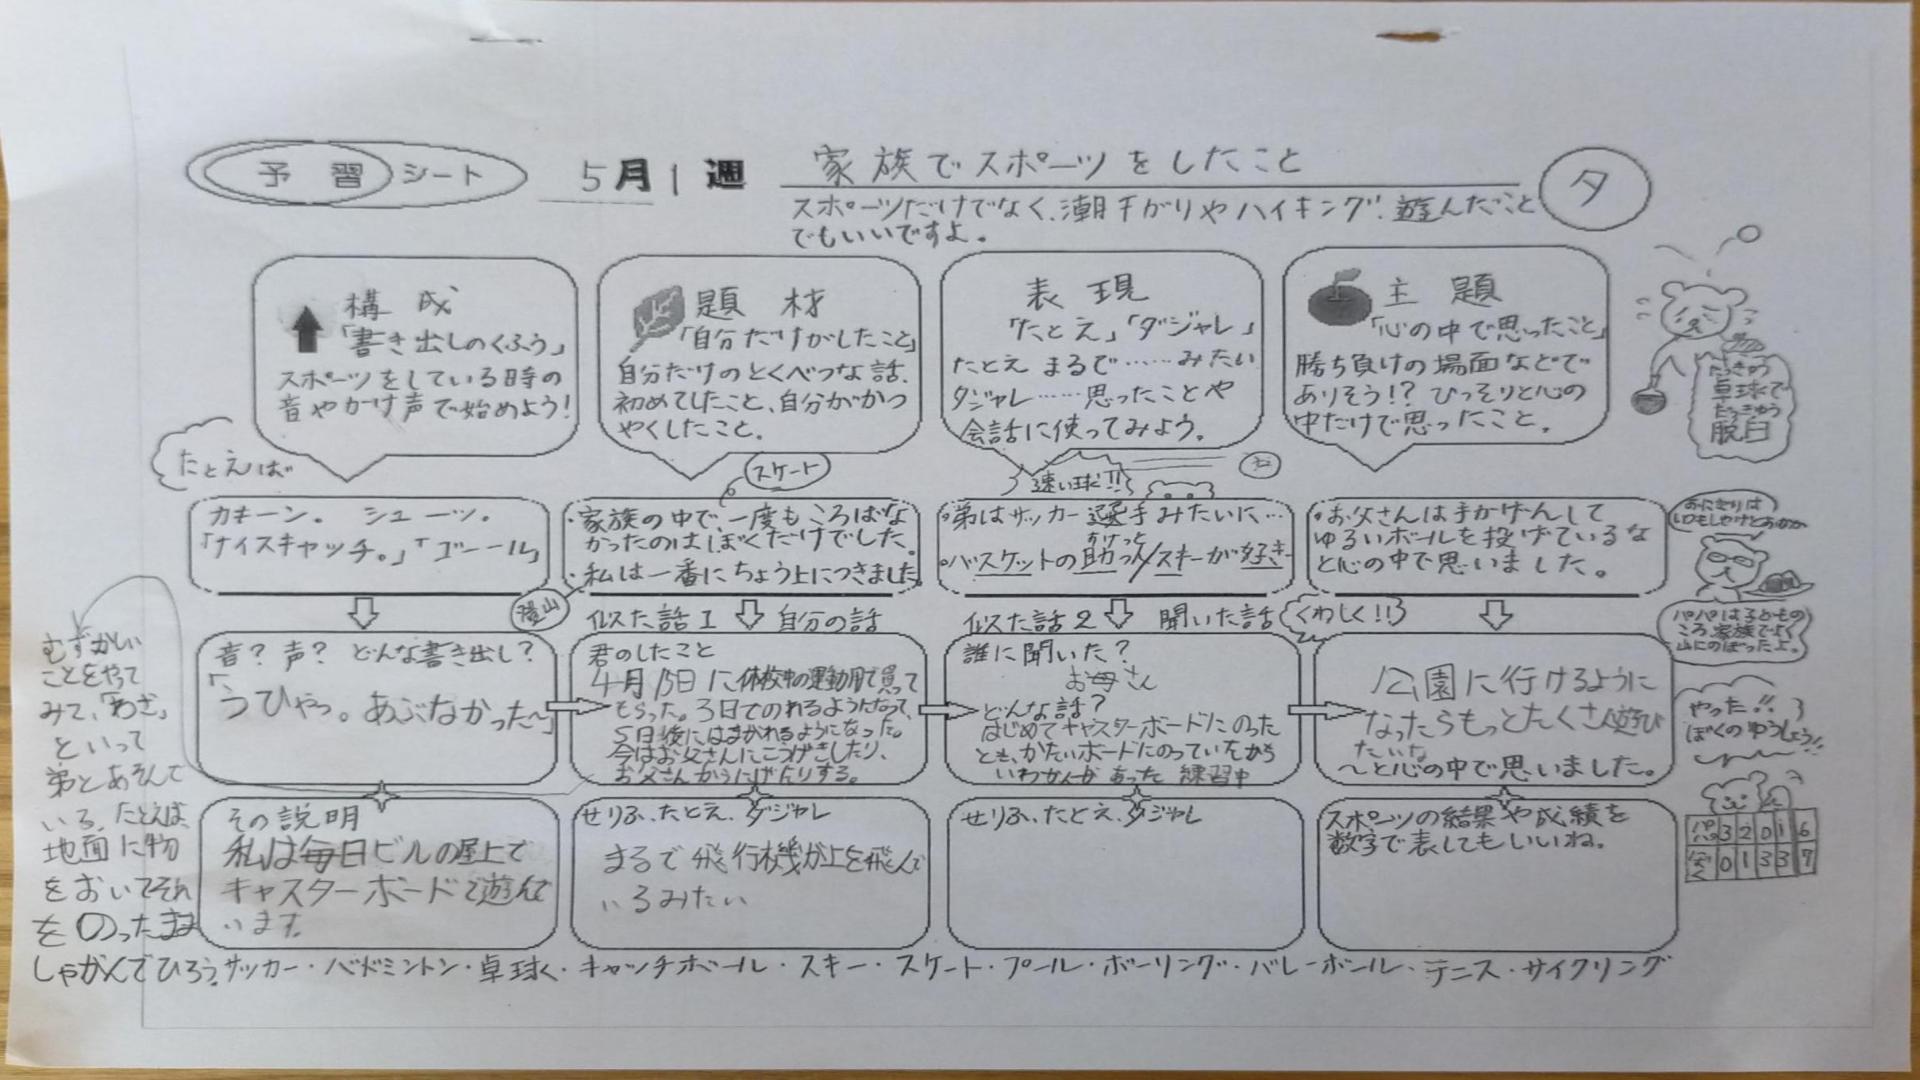 予習シート 5月1週 家族でスポーツをしたこと タ
スポーツだけでなく、潮干がりやハイキング、遊んだこと
でもいいですよ。
構成
「書き出しのくふう」
スポーツをしている時の
音やかけ声で始めよう!
題材
「自分だけがしたこと」
自分だけのとくべつな話、
初めてしたこと、自分がかつ
やくしたこと。
表現
「たとえ」「ダジャレ」
たとえ まるで……みたい
ダジャレ……思ったことや
会話に使ってみよう。
主題
「心の中で思ったこと」
勝ち負けの場面などで
ありそう!? ひっそりと心の
中だけで思ったこと。
たっきゅう
卓球くで
だっきゅう
脱臼
たとえば
カキーン。 シューッ。
「ナイスキャッチ。」「ゴーール」
スケート
・家族の中で、一度もころばな
かったのはぼくだけでした。
・私は一番にちょう上につきました。
登山
速い球!!
・弟はサッカー選手みたいに…
すけっと
・バスケットの助っ人/スキーが好きー
・お父さんは手かげんして
ゆるいボールを投げているな
と心の中で思いました。
おにぎりは
いつもしゃけとおかか
パパは子どもの
ころ、家族でよく
山にのぼったよ。
音? 声? どんな書き出し?
「うひゃっ。あぶなかった〜」
似た話1 自分の話
君のしたこと
4月13日に休校中の運動用で買って
もらった。3日でのれるようになって、
5日後にはまがれるようになった。
今はお父さんにこうげきしたり、
お父さんからにげたりする。
似た話2 聞いた話
誰に聞いた?
お母さん
どんな話?
はじめてキャスターボードにのった
とき、かたいボードにのっていたから
いわかんがあった 練習中
くわしく!!
公園に行けるように
なったらもっとたくさん遊び
たいな
〜と心の中で思いました。
やった!!
ぼくのゆうしょう!!
その説明
私は毎日ビルの屋上で
キャスターボードで遊んで
います。
せりふ、たとえ、ダジャレ
まるで飛行機が上を飛んで
いるみたい
せりふ、たとえ、ダジャレ
スポーツの結果や成績を
数字で表してもいいね。
パパ 3 2 0 1 6
ぼく 0 1 3 3 7
むずかしい
ことをやって
みて、「わざ」
といって
弟とあそんで
いる。たとえば、
地面に物
をおいてそれ
をのったまま
しゃがんでひろう。
サッカー・バドミントン・卓球く・キャッチボール・スキー・スケート・プール・ボーリング・バレーボール・テニス・サイクリング